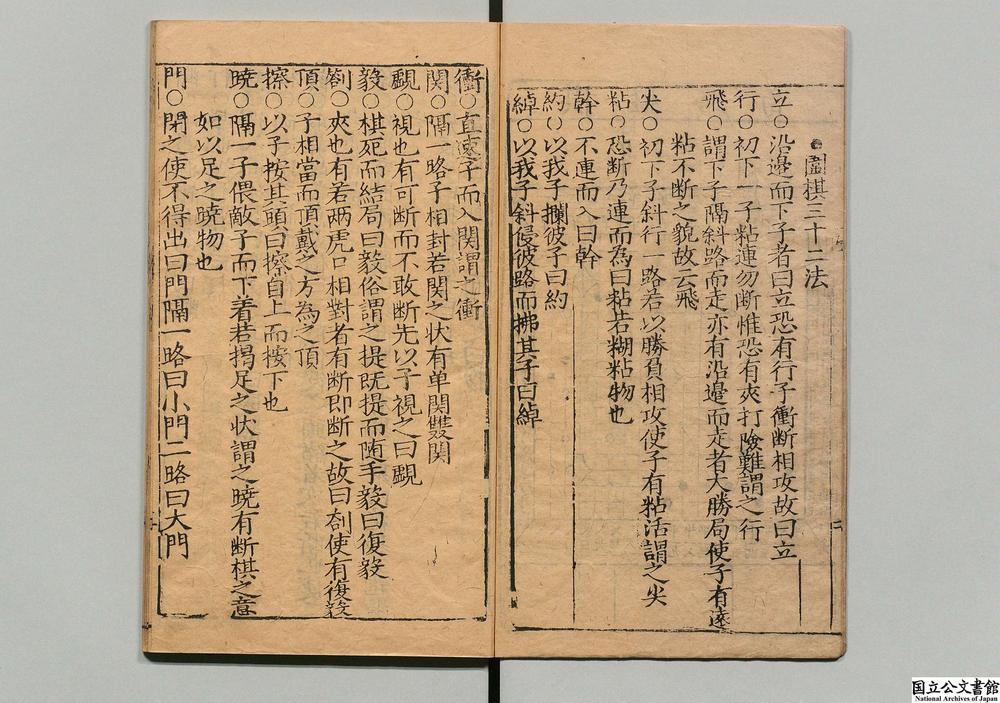 ●圍棋三十二法
立○沿邉而下子者曰立恐有行子衝断相攻故曰立
行○初下一子粘連勿断惟恐有夾打險難謂之行
飛○謂下子隔斜路而走亦有沿邉而走者大勝局使子有遠
粘不断之貌故云飛
尖○初下子斜行一路若以勝負相攻使子有粘活謂之尖
粘○恐断乃連而為曰粘若糊粘物也
幹○不連而入曰幹
約○以我子攔彼子曰約
綽○以我子斜侵彼路而拂其子曰綽
衝○直速子而入関謂之衝
関○隔一路子相封若関之状有单関雙関
覷○視也有可断而不敢断先以子視之曰覷
毅○棋死而結局曰毅俗謂之提既提而随手毅曰復毅
劄○夾也有若两虎口相對者有断即断之故曰劄使有復毅
頂○子相當而頂戴之方為之頂
擦○以子按其頭曰擦自上而按下也
暁○隔一子偎敵子而下着若揭足之状謂之暁有断棋之意
如以足之暁物也
門○閉之使不得出曰門隔一路曰小門二路曰大門
国立公文書館
National Archives of Japan